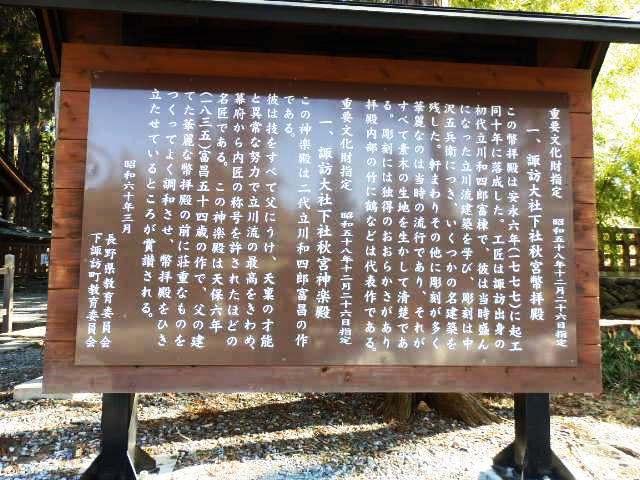 重要文化財指定　昭和五十八年十二月二十六日指定
一、諏訪大社下社秋宮幣拝殿
この幣拝殿は安永六年(一七七七)に起工
同十年に落成した。工匠は諏訪出身の
初代立川和四郎富棟で、彼は当時盛ん
になった立川流建築を学び、彫刻は中
沢五兵衛につき、いくつかの名建築を
残した。軒まわりその他に彫刻が多く
華麗なのは当時の流行であり、それが
すべて素木の生地を生かして清楚であ
る。彫刻には独得のおおらかさがあり
拝殿内部の竹に鶴などは代表作である。
重要文化財指定　昭和五十八年十二月二十六日指定
一、諏訪大社下社秋宮神楽殿
この神楽殿は二代立川和四郎富昌の作
である。
彼は技をすべて父にうけ、天稟の才能
と異常な努力で立川流の最高をきわめ、
幕府から内匠の称号を許されたほどの
名匠である。この神楽殿は天保六年
(一八三五)富昌五十四歳の作で、父の建
てた華麗な幣拝殿の前に荘重なものを
つくってよく調和させ、幣拝殿をひき
立たせているところが賞讃される。
昭和六十年三月
長野県教育委員会
下諏訪町教育委員会